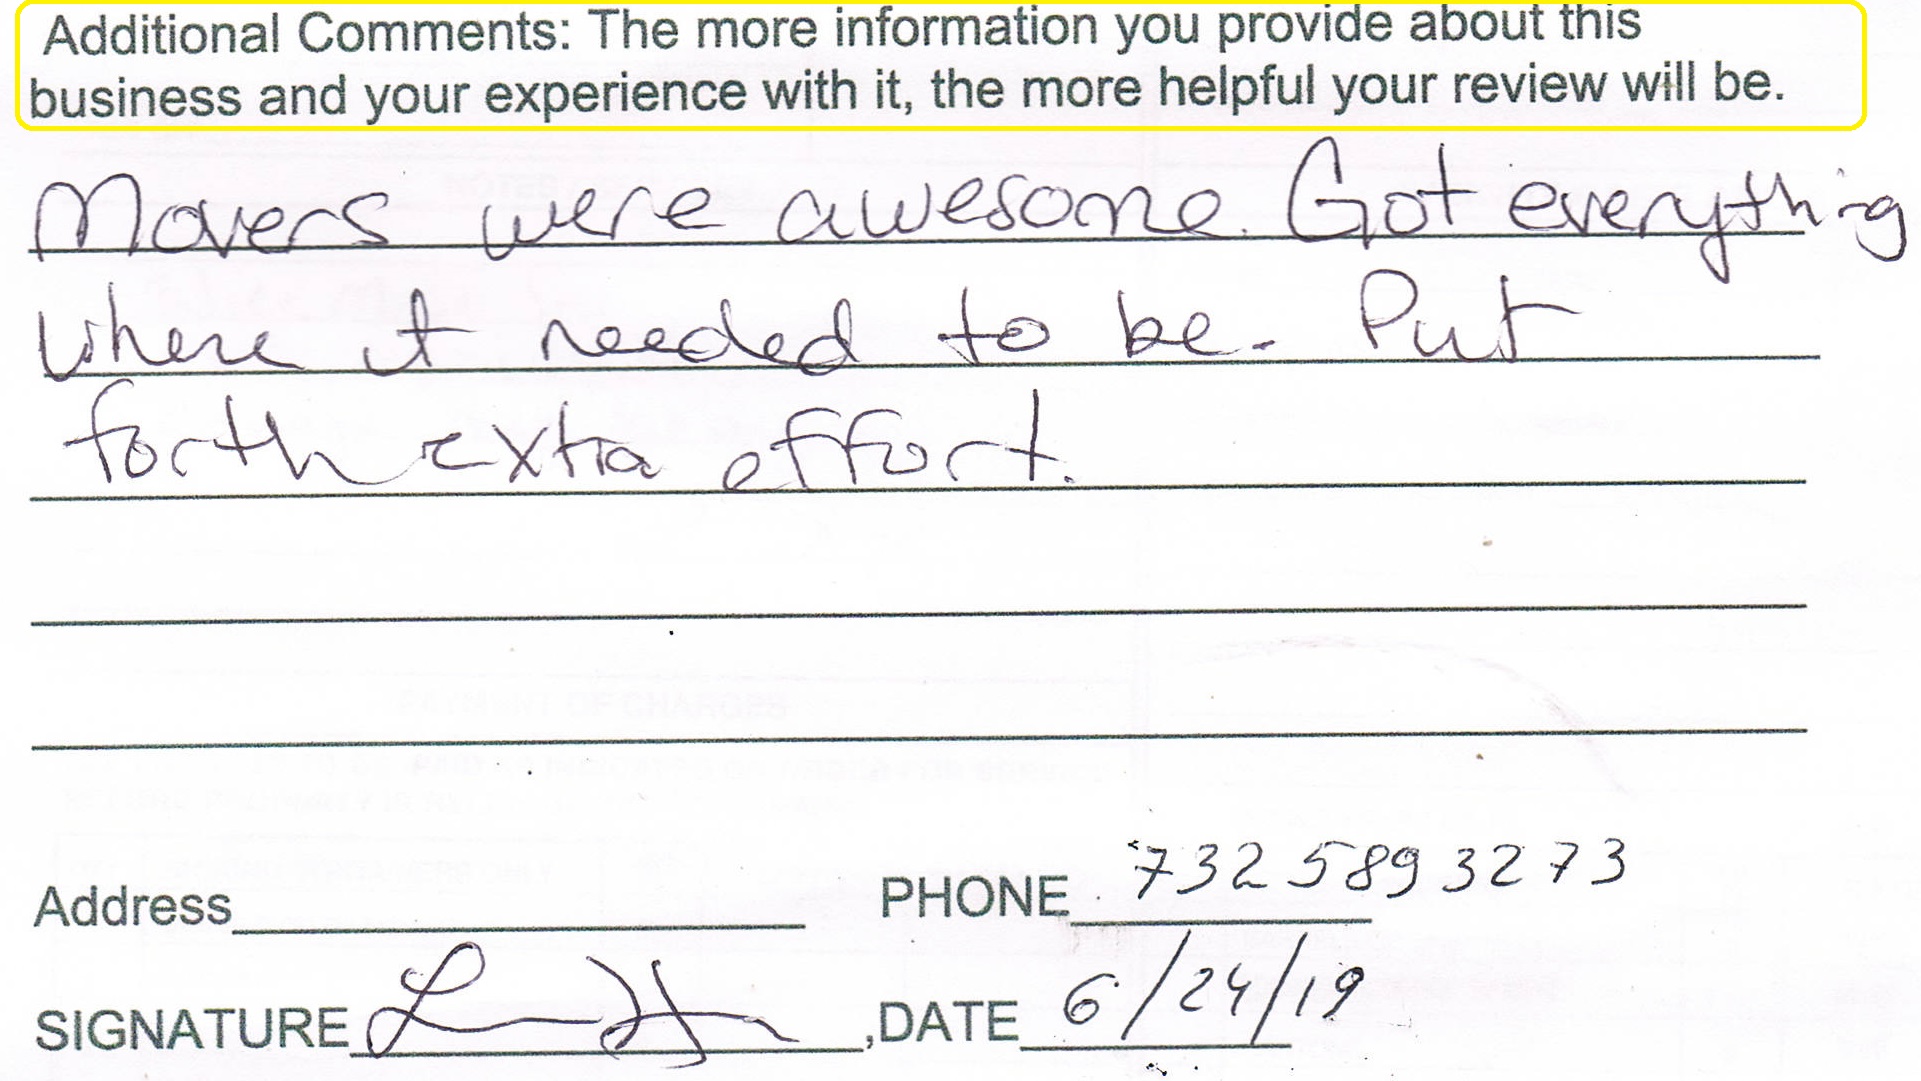 Additional Comments: The more information you provide about this
business and your experience with it, the more helpful your review will be.
Movers were awesome. Got everything
where it needed to be. Put
forth extra effort.
Address PHONE 732 589 3273
SIGNATURE ,DATE 6/24/19